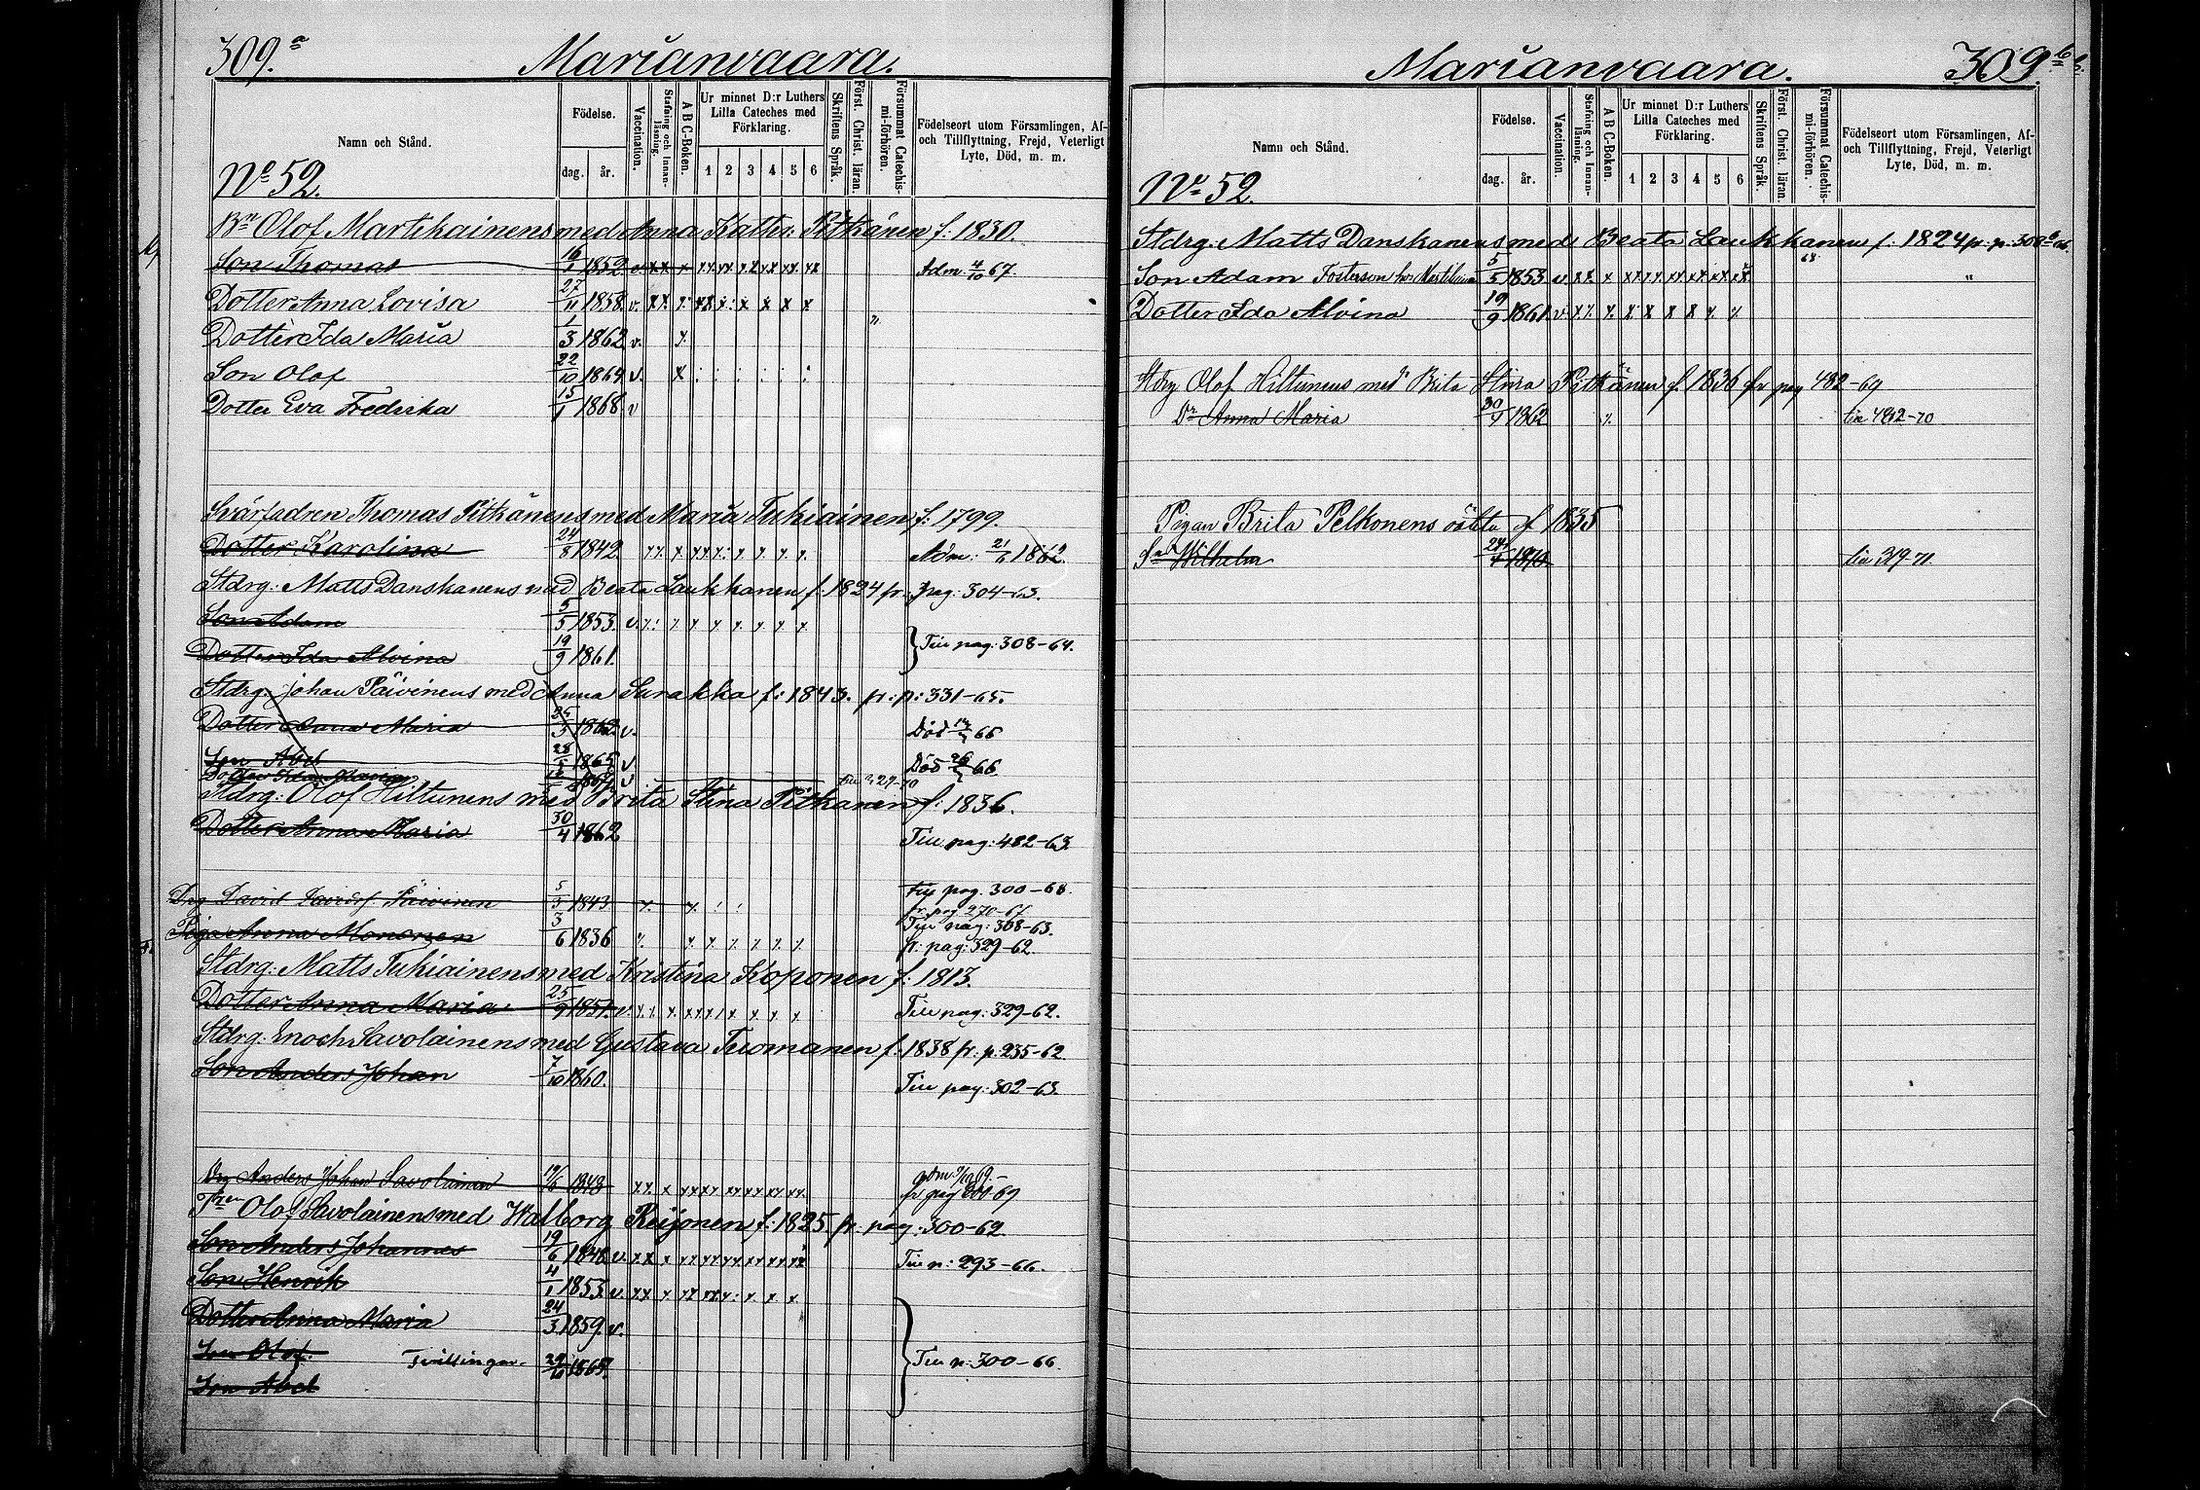 309.a Marianvaara.
Namn och Stånd.
Födelse.
dag. år.
Vaccination.
Stafning och Innan-läsning.
A B C-Boken.
Ur minnet D:r Luthers Lilla Cateches med Förklaring.
1 2 3 4 5 6
Skriftens Språk.
Först. Christ. läran.
Försummat Catechis-mi-förhören.
Födelseort utom Församlingen, Af- och Tillflyttning, Frejd, Veterligt Lyte, Död, m. m.
No 52.
Bn Olof Martikainens med Anna Kathr. Pitkänen f: 1830.
Son Thomas 16/1 1852 v. Adm. 4/10 67.
Dotter Anna Lovisa 27/11 1858 v.
Dotter Ida Maria 1/3 1862 v.
Son Olof 22/10 1864 v.
Dotter Eva Fredrika 15/1 1868 v
Svärfadren Thomas Pitkänens med Maria Tukiainen f: 1799.
Dotter Karolina 24/8 1842 Adm: 21/6 1862.
Stdrg: Matts Danskanens med Beata Laukkanen f. 1824 fr. pag: 304-63.
Son Adam 5/5 1853. v.
Dotter Ida Alvina 19/9 1861. Till pag: 308-64.
Stdrg: Johan Päivinens med Anna Surakka f: 1843. fr: p: 331-65.
Dotter Anna Maria 25/3 1862 v. Död 66
Son Abel 28/5 1865 v. Död 66.
Stdrg: Olof Hiltunens med Brita Stina Pitkänen f: 1836.
Dotter Anna Maria 30/4 1862 Till pag: 482-63.
Till pag. 300-68.
Drg David Päivinen 5/5 1843 fr. pag 270-67
Till pag: 308-63.
Piga Anna Mononen 3/6 1836 fr: pag: 329-62.
Stdrg: Matts Tukiainens med Kristina Koponen f: 1813.
Dotter Anna Maria 25/9 1851. v. Till pag: 329-62.
Stdrg: Enoch Savolainens med Gustava Tuomanen f: 1838 fr: p: 235-62
Son Anders Johan 7/10 1860. Till pag: 302-63.
Drg Anders Johan Savolainen 19/6 1848 fr pag 69
Olof Savolainens med Walborg Reijonen f: 1825. fr. pag: 300-62.
Son Anders Johannes 19/6 1848 v. Till p: 293-66.
Son Henrik 4/1 1853 v.
Dotter Anna Maria 24/3 1859. v.
Son Olof Tvillingar 1865. Till p: 300-66.
Son Abel
Marianvaara. 309.b
Namn och Stånd.
Födelse.
dag. år.
Vaccination.
Stafning och Innan-läsning.
A B C-Boken.
Ur minnet D:r Luthers Lilla Cateches med Förklaring.
1 2 3 4 5 6
Skriftens Språk.
Först. Christ. läran.
Försummat Catechis-mi-förhören.
Födelseort utom Församlingen, Af- och Tillflyttning, Frejd, Veterligt Lyte, Död, m. m.
No 52.
Stdrg: Matts Danskanens med Beata Laukkanen f. 1824 fr. p.
Son Adam Fosterson hos Martikainen 5/5 1853 v
Dotter Ida Alvina 19/9 1861. v.
Stdrg Olof Hiltunens med Brita Stina Pitkänen f 1836 fr pag 482-69
Dr Anna Maria 30/4 1862 till 482-70
Pigan Brita Pelkonens oäkta f 1835
Sn Wilhelm 1870 till 319-71